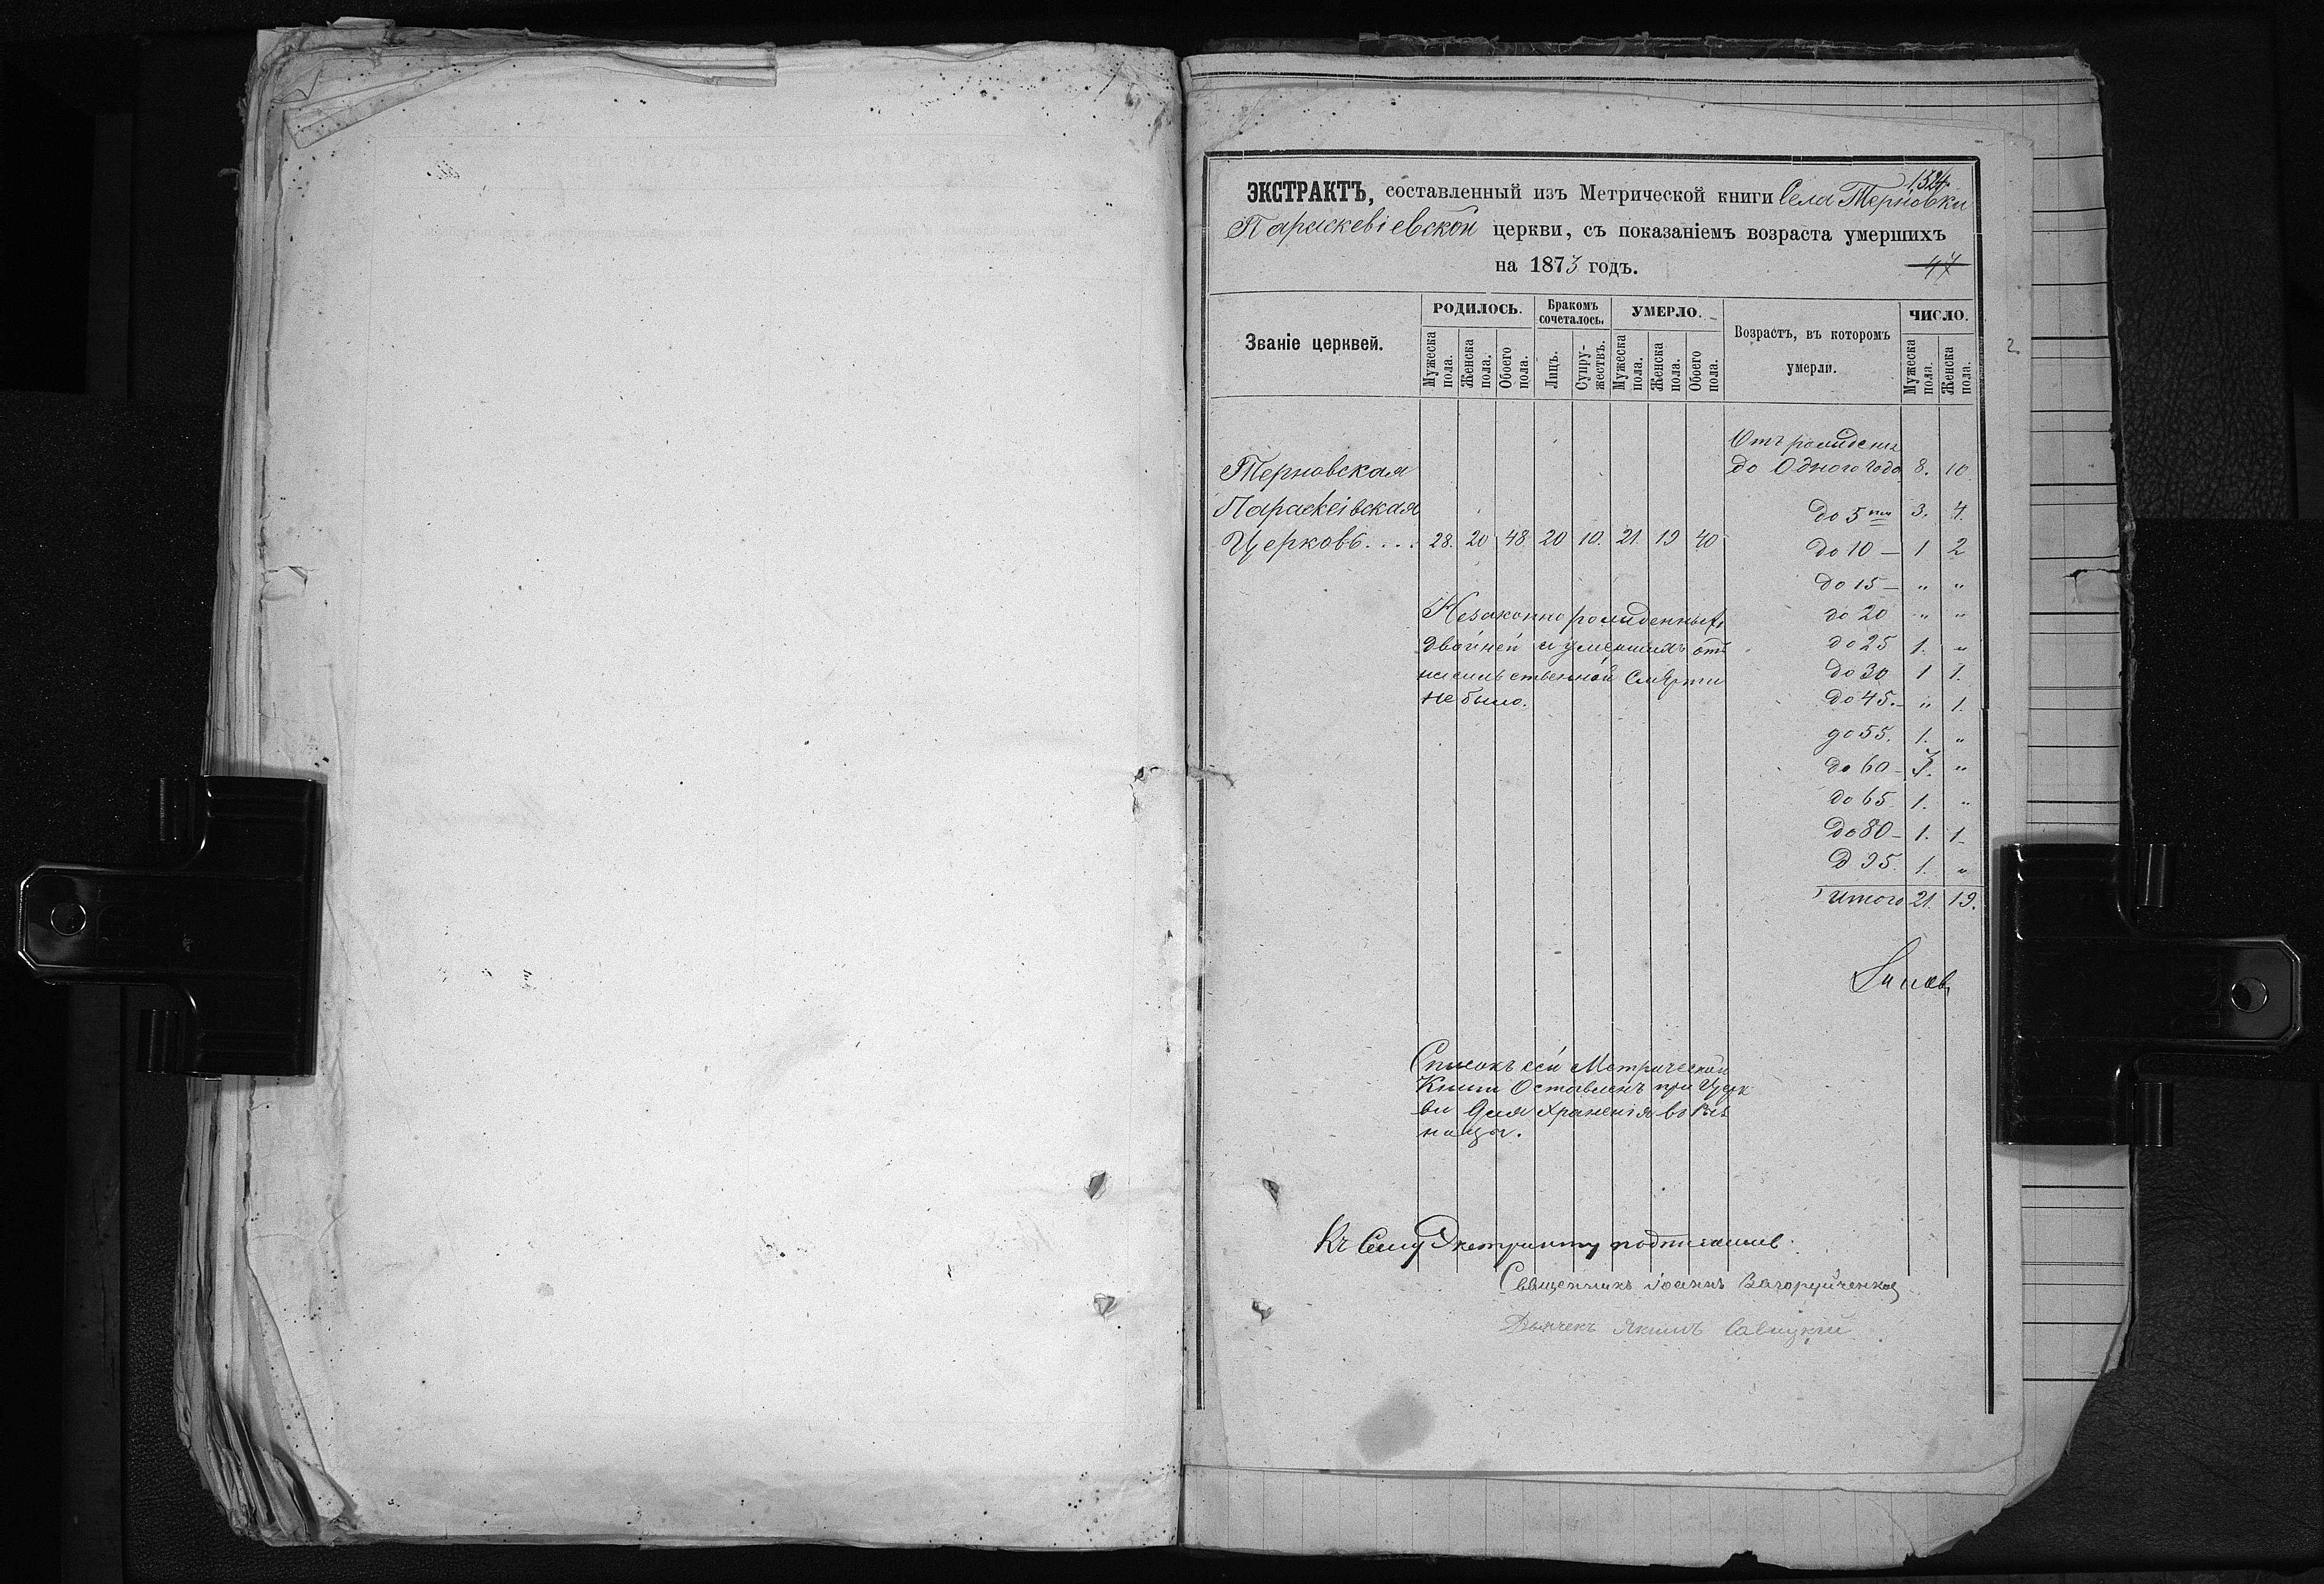 1524
ЭКСТРАКТЪ, составленный изъ Метрической книги Села Терновки
Параскевіевской церкви, съ показаніемъ возраста умершихъ
на 1873 годъ.
47
Званіе церквей.
РОДИЛОСЬ.
Мужеска пола.
Женска пола.
Обоего пола.
Бракомъ сочеталось.
Лицъ.
Супружествъ.
УМЕРЛО.
Мужеска пола.
Женска пола.
Обоего пола.
Возрастъ, въ которомъ
умерли.
ЧИСЛО.
Мужеска пола.
Женска пола.
2
Терновская
Параскеівская
Церковь.... 28. 20 48 20 10. 21. 19 40
Незаконно рожденныхъ
двойней и умершихъ отъ
насильственной смерти
не было.
Отъ рожденія
до Одного года 8. 10
до 5ти 3. 4.
до 10 — 1 2
до 15 — „ „
до 20 „ „
до 25 1. „
до 30 1 1.
до 45. — „ 1.
до 55. 1. „
до 60 — 3. „
до 65 1. „
до 80 — 1. 1
Д 95. 1. „
Итого 21. 19.
Списокъ сей Метрической
Книги Оставленъ при Церк
ви для храненія во
Къ Сему Экстракту подписались
Священникъ Іоаннъ
Дьячекъ Якимъ Савицкій